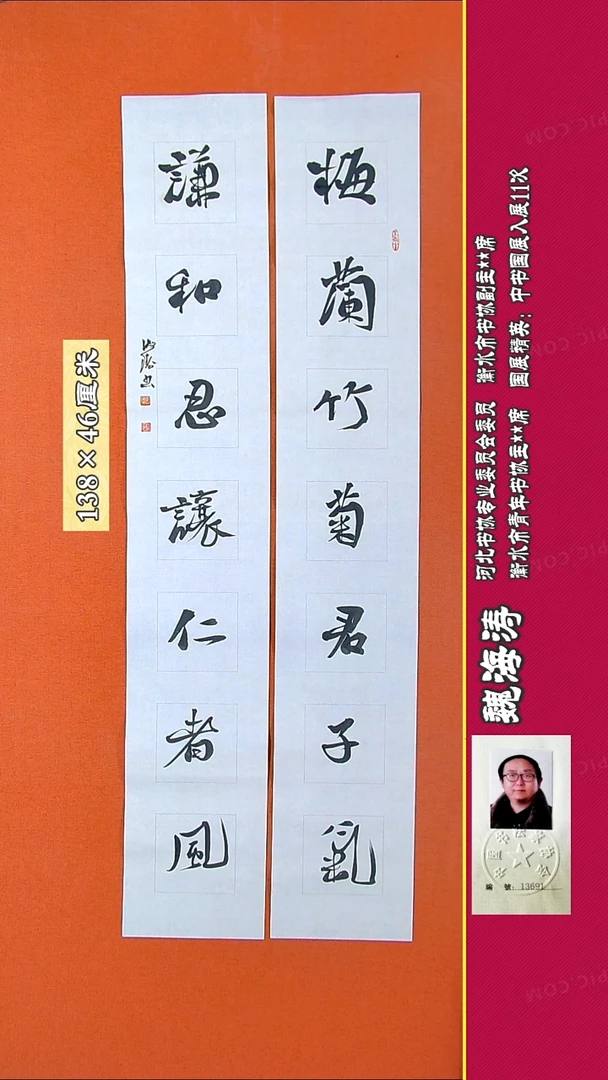 梅蘭竹菊君子氣
謙和忍讓仁者風
海涛书
138×46厘米
魏海涛
河北书协专业委员会委员 衡水市书协副主**席
衡水市青年书协主**席 国展精英：中书国展入展11次
編 號：13691